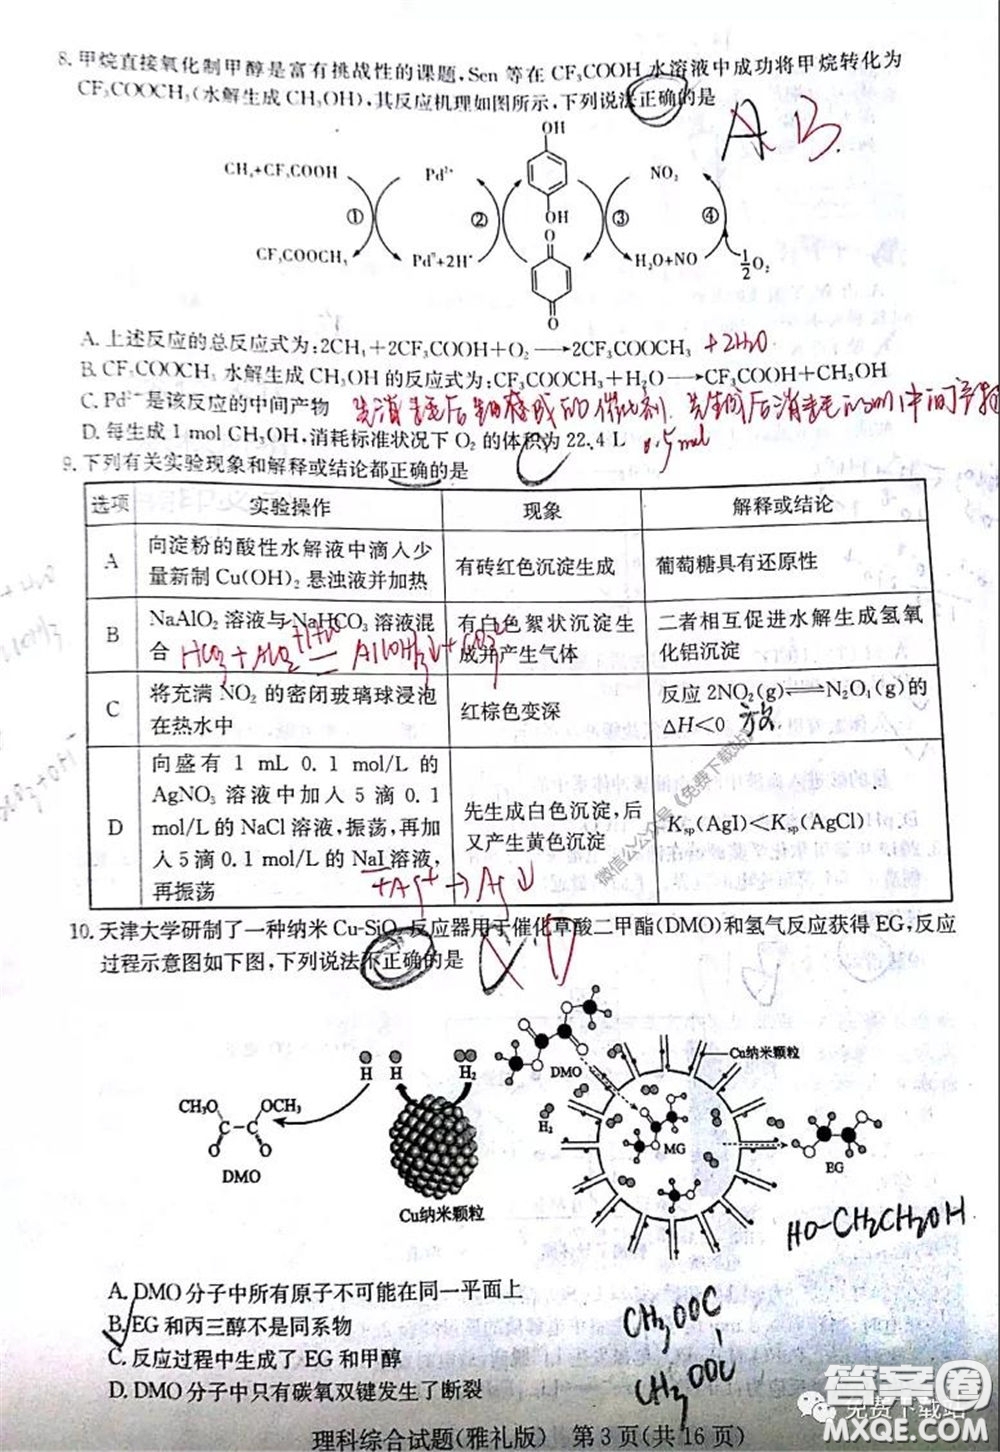 8.甲烷直接氧化制甲醇是富有挑战性的课题,Sen 等在 CF₃COOH 水溶液中成功将甲烷转化为
CF₃COOCH₃(水解生成CH₃OH),其反应机理如图所示,下列说法正确的是
A B
OH
CH₄+CF₃COOH
Pd²⁺
NO₂
① ② ③ ④
OH
O
CF₃COOCH₃
Pd⁰+2H⁺
H₂O+NO
1/2 O₂
O
A.上述反应的总反应式为:2CH₄+2CF₃COOH+O₂→2CF₃COOCH₃ +2H₂O
B.CF₃COOCH₃ 水解生成CH₃OH的反应式为:CF₃COOCH₃+H₂O→CF₃COOH+CH₃OH
C.Pd²⁺是该反应的中间产物 先消耗后生成的催化剂.先生成后消耗的 中间产物
D.每生成 1 mol CH₃OH,消耗标准状况下 O₂ 的体积为 22.4 L 0.5mol
9.下列有关实验现象和解释或结论都正确的是
选项 实验操作 现象 解释或结论
A 向淀粉的酸性水解液中滴入少量新制 Cu(OH)₂ 悬浊液并加热 有砖红色沉淀生成 葡萄糖具有还原性
B NaAlO₂ 溶液与 NaHCO₃ 溶液混合 有白色絮状沉淀生成并产生气体 二者相互促进水解生成氢氧化铝沉淀
HCO₃+AlO₂+H₂O=Al(OH)₃↓+CO₃²⁻
C 将充满 NO₂ 的密闭玻璃球浸泡在热水中 红棕色变深 反应 2NO₂(g)⇌N₂O₄(g)的ΔH<0 放
D 向盛有 1 mL 0.1 mol/L 的 AgNO₃ 溶液中加入 5 滴 0.1 mol/L 的 NaCl 溶液,振荡,再加入 5 滴 0.1 mol/L 的 NaI 溶液,再振荡 先生成白色沉淀,后又产生黄色沉淀 Ksp(AgI)<Ksp(AgCl)
+Ag⁺→AgI↓
微信公众号《免费下载站》
10.天津大学研制了一种纳米 Cu-SiO₂ 反应器用于催化草酸二甲酯(DMO)和氢气反应获得 EG,反应
过程示意图如下图,下列说法不正确的是
D
H H H₂
DMO
Cu纳米颗粒
CH₃O OCH₃
C-C
O O
DMO
H₂
MG
EG
Cu纳米颗粒
HO-CH₂CH₂OH
A.DMO分子中所有原子不可能在同一平面上
B.EG和丙三醇不是同系物
C.反应过程中生成了EG和甲醇
D.DMO分子中只有碳氧双键发生了断裂
CH₃OOC
CH₃OOC
理科综合试题(雅礼版) 第 3 页(共 16 页)
免费下载站
答案圈
MXQE.COM